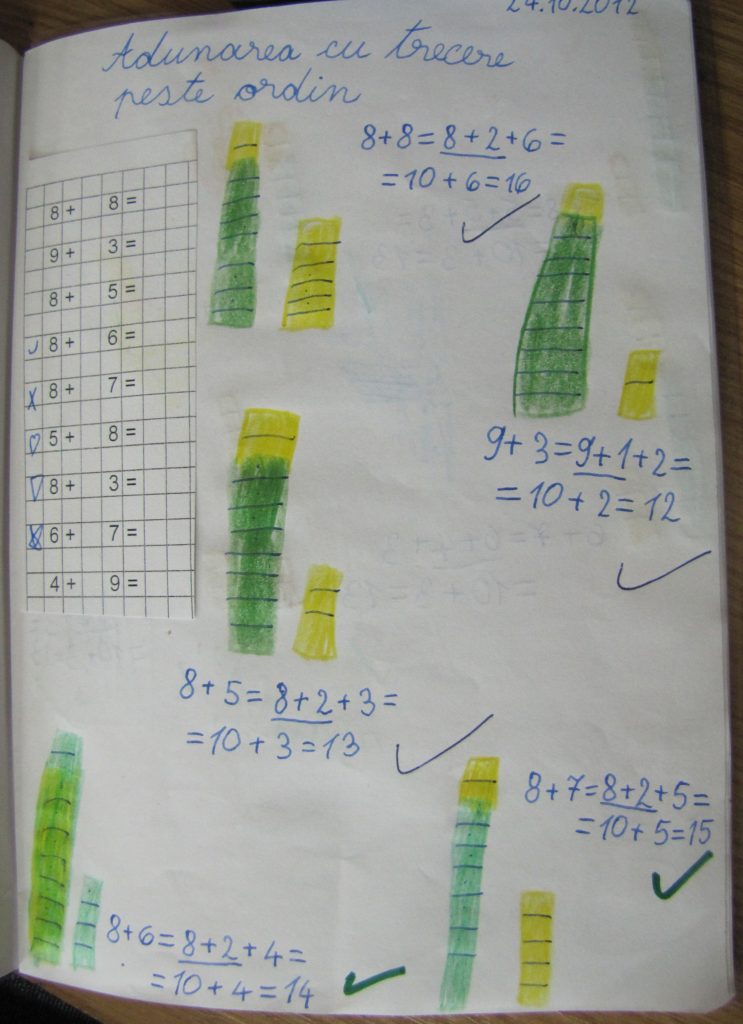 24.10.2012
Adunarea cu trecere
peste ordin
8+8=8+2+6=
=10+6=16
8+ 8=
9+ 3=
8+ 5=
8+ 6=
8+ 7=
5+ 8=
8+ 3=
6+ 7=
4+ 9=
9+3=9+1+2=
=10+2=12
8+5=8+2+3=
=10+3=13
8+7=8+2+5=
=10+5=15
8+6=8+2+4=
=10+4=14